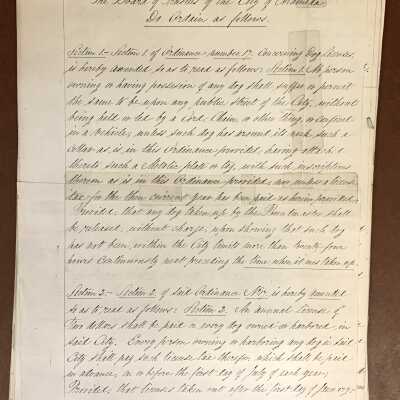 The Board of Trustees of the City of Alameda
Do Ordain as follows.
Section 1.- Section 1 of Ordinance number 17. Concerning Dog Licenses,
is hereby amended so as to read as follows: Section 1. No person
owning or having possession of any dog shall suffer or permit
the same to be upon any public street of the City, without
being held or led by a Cord, Chain or other thing, or confined
in a Vehicle, unless such dog has around its neck such a
collar as is in this Ordinance provided, having attached
thereto such a Metalic plate or tag, with such inscriptions
thereon as is in this Ordinance provided, nor unless a license
tax for the then current year has been paid as herein provided,
Provided, that any dog taken up by the Poundmaster shall
be released, without charge, upon showing that such dog
has not been within the City limits more than twenty four
hours continuously next preceding the time when it was taken up.
Section 2.- Section 2 of said Ordinance is hereby amended
so as to read as follows: Section 2. An annual License of
Two dollars shall be paid on every dog owned or harbored, in
said City. Every person owning or harboring any dog in said
City shall pay such license tax therefor, which shall be paid
in advance, on or before the first day of July of each year;
Provided, that licenses taken out after the first day of January